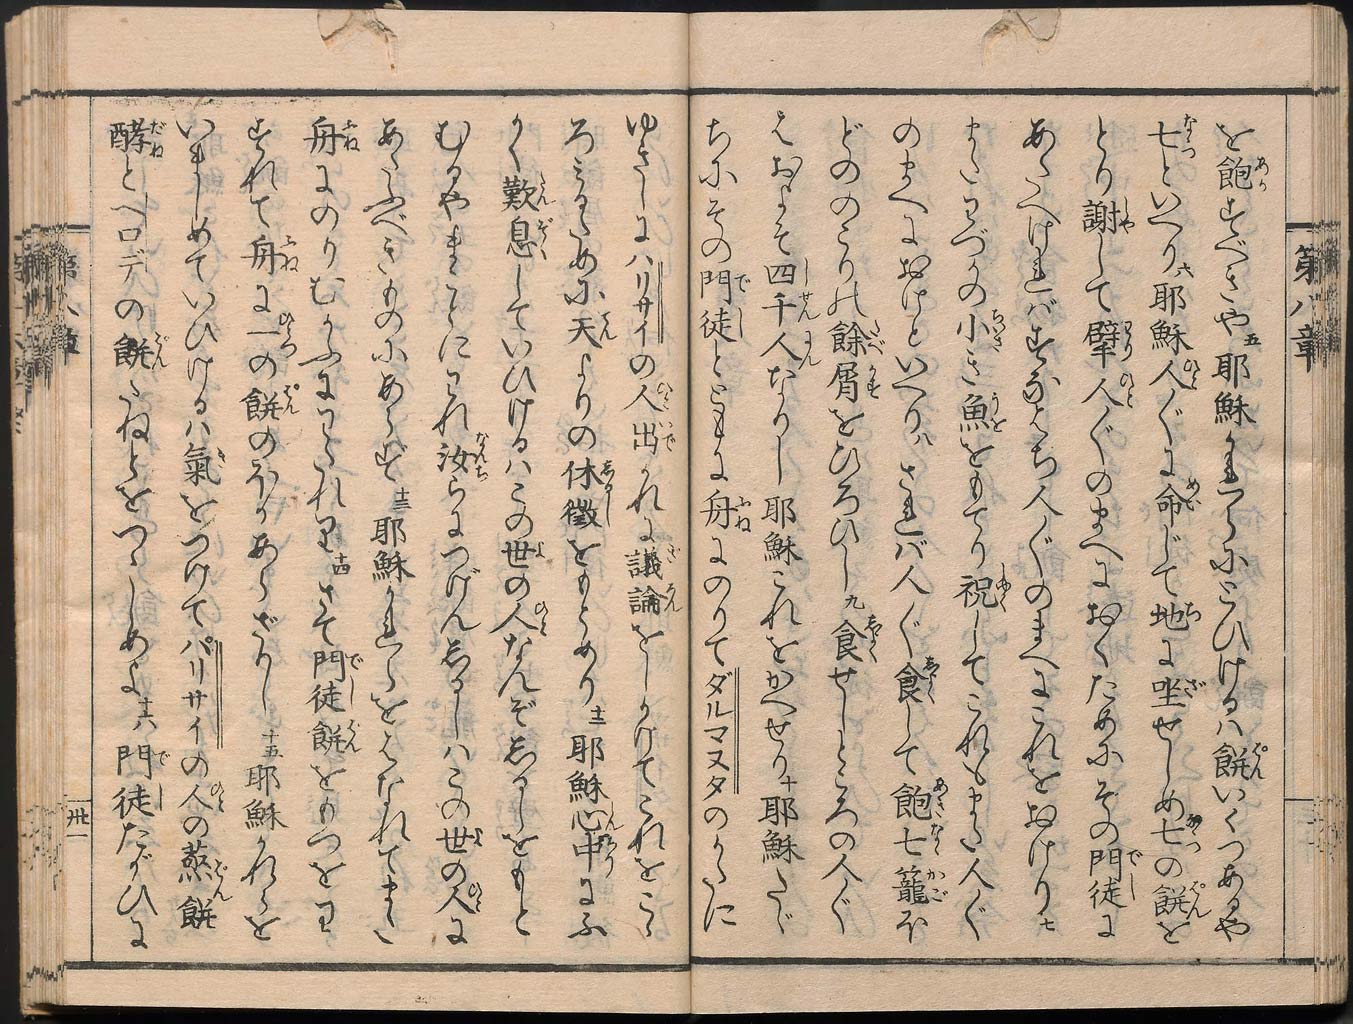 第八章
を飽すべきや五耶穌かれらにとひけるハ餅いくつあるや
七といへり六耶穌人〲に命じて地に坐せしめ七の餅を
とり謝して擘人〲のまへにおくためにその門徒に
あたへけれバすなはち人〲のまへにこれをおけり七
またわづかの小き魚をもてり祝してこれもまた人〲
のまへにおけといへり八されバ人〲食して飽七籠ほ
どののこりの餘屑をひろひし九食せしところの人〲
はおよそ四千人なりし耶穌これをかへせり十耶穌たゞ
ちにその門徒とともに舟にのりてダルマヌタのかたに
ゆきしにハリサイの人出かれに議論をしかけてこれをこゝ
ろみるために天よりの休徴をもとめり十二耶穌心中にふ
かく歎息していひけるハこの世の人なんぞしるしをもと
むるやまことにわれ汝らにつげんしるしハこの世の人に
あたふべきものにあらず十三耶穌かれらをはなれてまた
舟にのりむかふにわたれり十四さて門徒餅をもつをわ
すれて舟に一の餅のほかあらざりし十五耶穌かれらを
いましめていひけるハ氣をつけてパリサイの人の蒸餅
酵とヘロデの餅だねとをつゝしめよ十六門徒たがひに
第八章
卅一